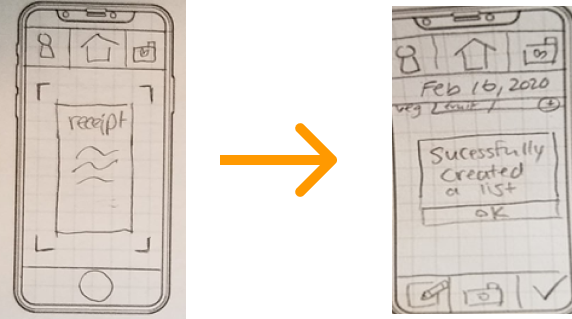 receipt
Feb 16, 2020
veg fruit
Sucessfully
created
a list
OK